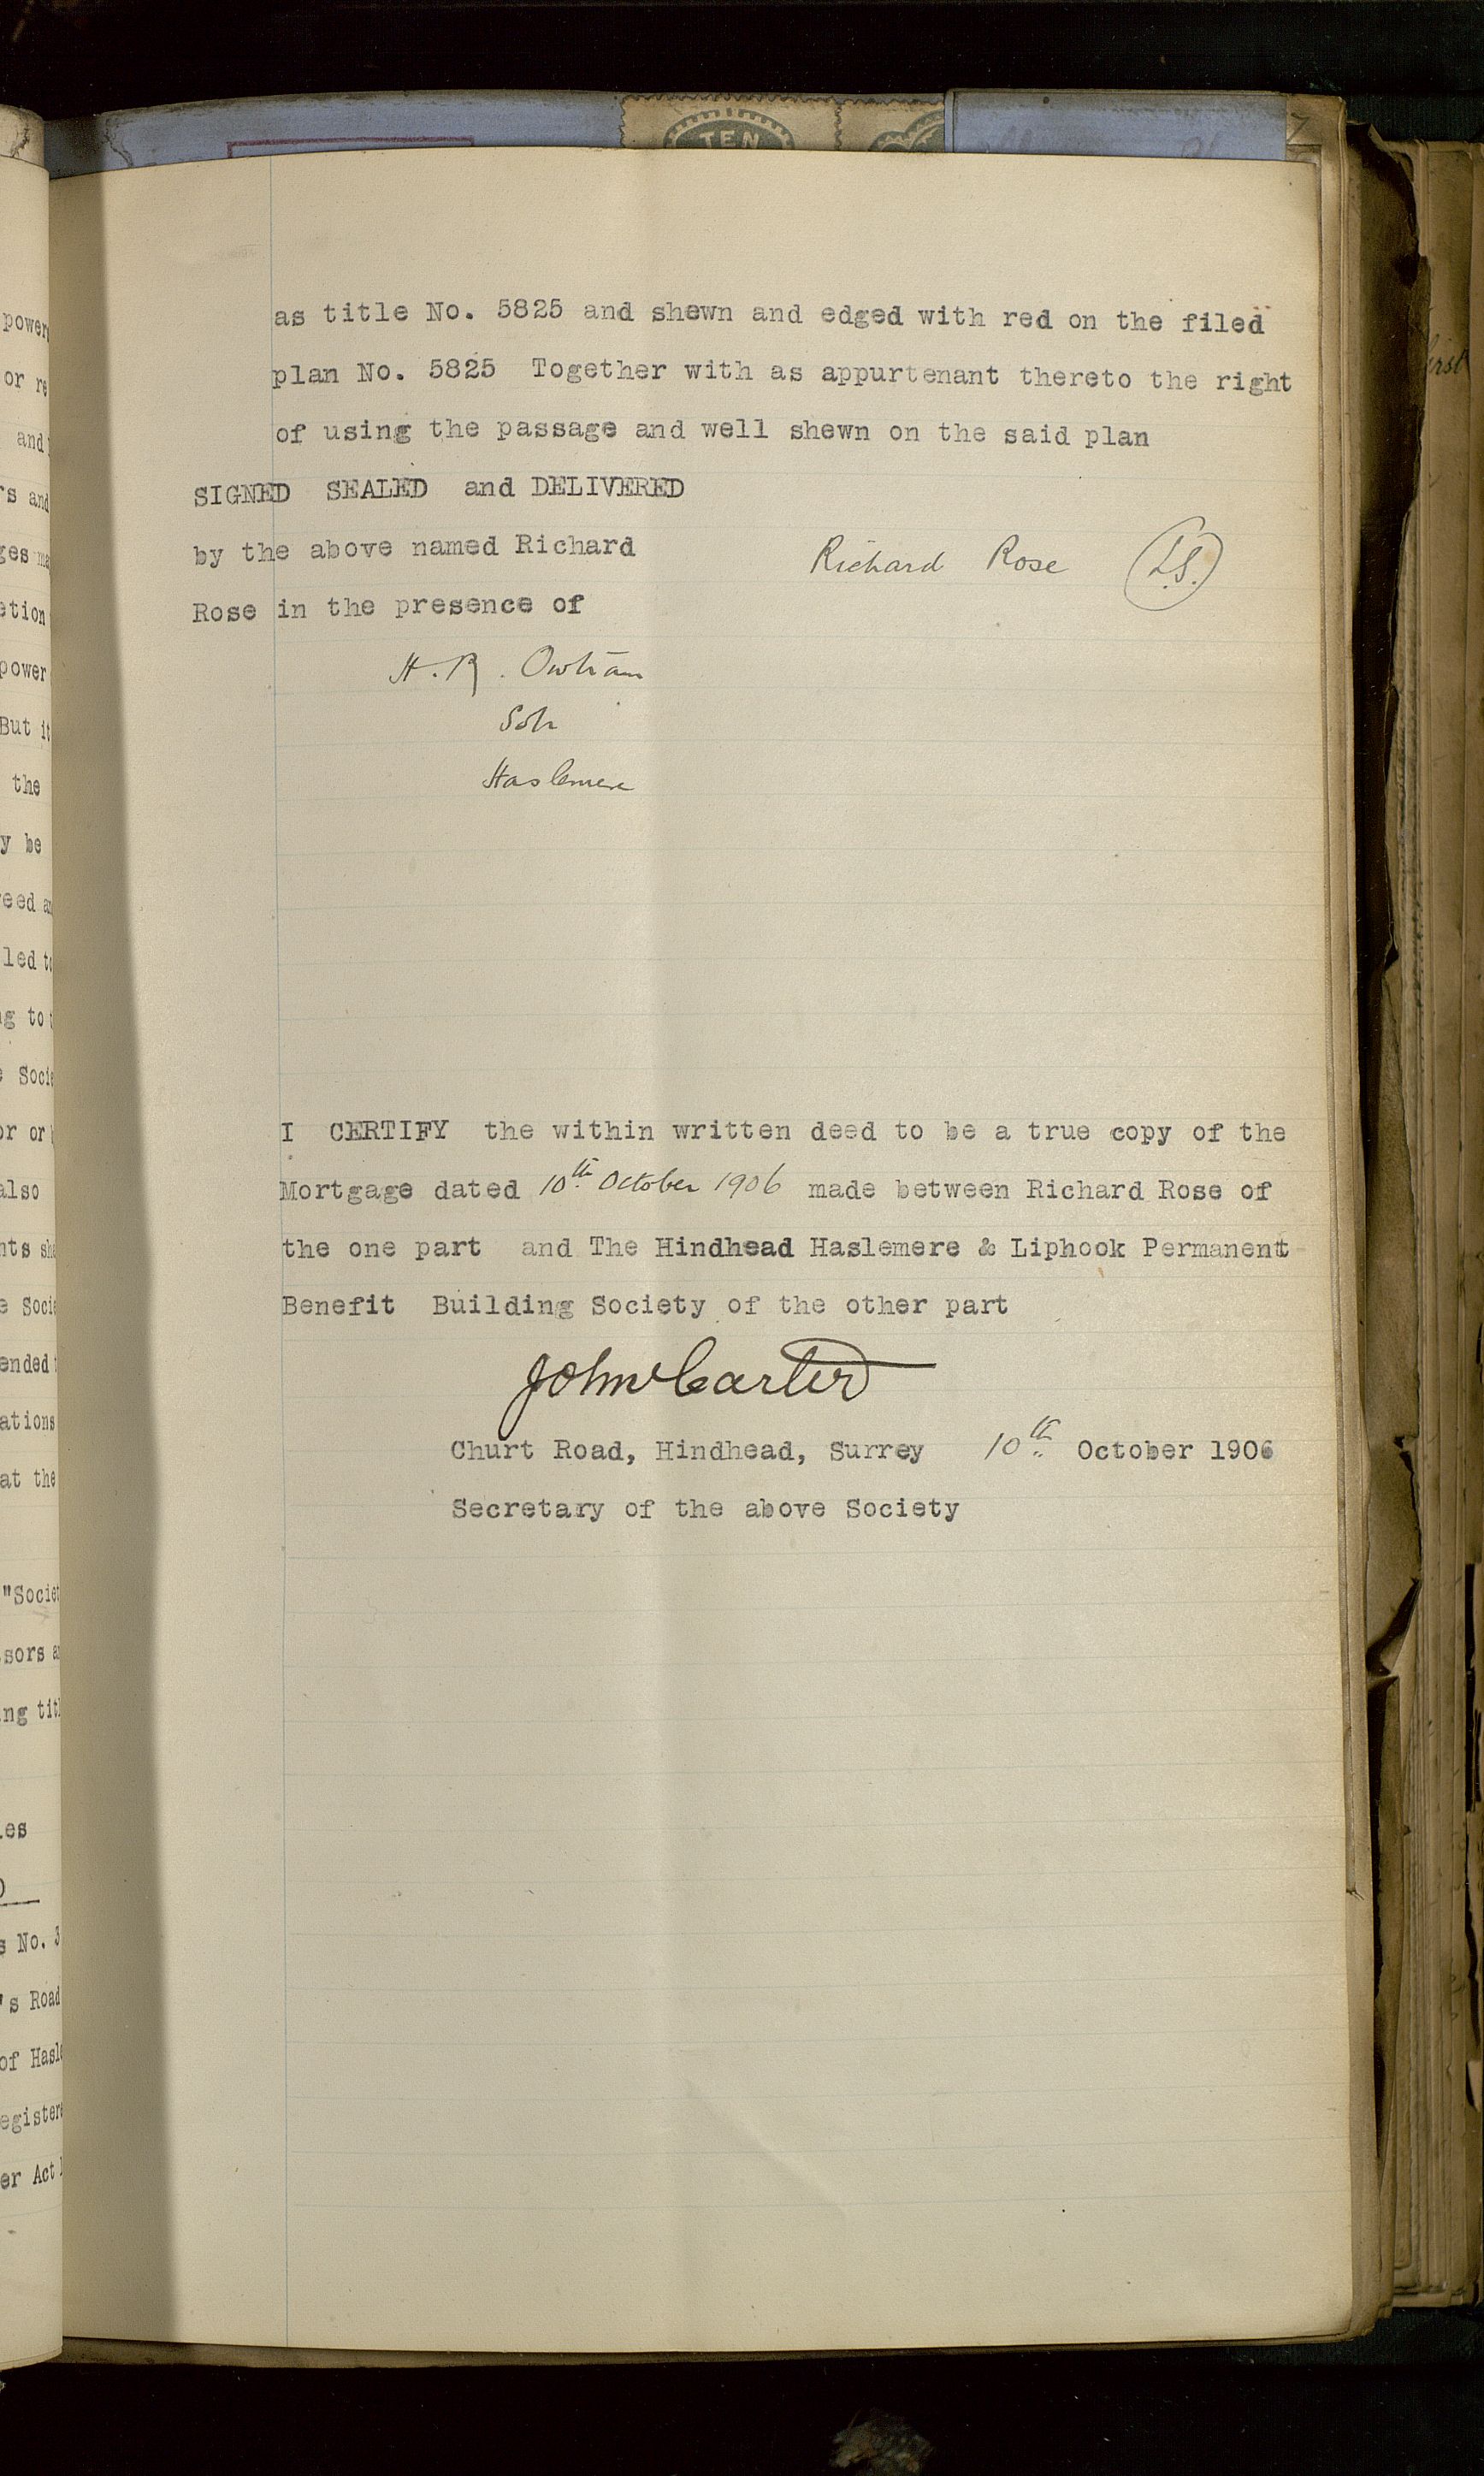 TEN
7
as title No. 5825 and shewn and edged with red on the filed
plan No. 5825 Together with as appurtenant thereto the right
of using the passage and well shewn on the said plan
SIGNED SEALED and DELIVERED
by the above named Richard
Rose in the presence of
Richard Rose L.S.
H. R.
Solr
Haslemere
I CERTIFY the within written deed to be a true copy of the
Mortgage dated 10th October 1906 made between Richard Rose of
the one part and The Hindhead Haslemere & Liphook Permanent
Benefit Building Society of the other part
John Carter
Churt Road, Hindhead, Surrey 10th October 1906
Secretary of the above Society
power
or re
and
rs and
ges ma
etion
power
But it
the
y be
eed a
led to
ng to t
e Socie
or or
also
nts sha
e Socie
ended
ations
at the
"Societ
sors a
ng titl
es
s No. 3
's Road
of Hasle
egistere
er Act 1